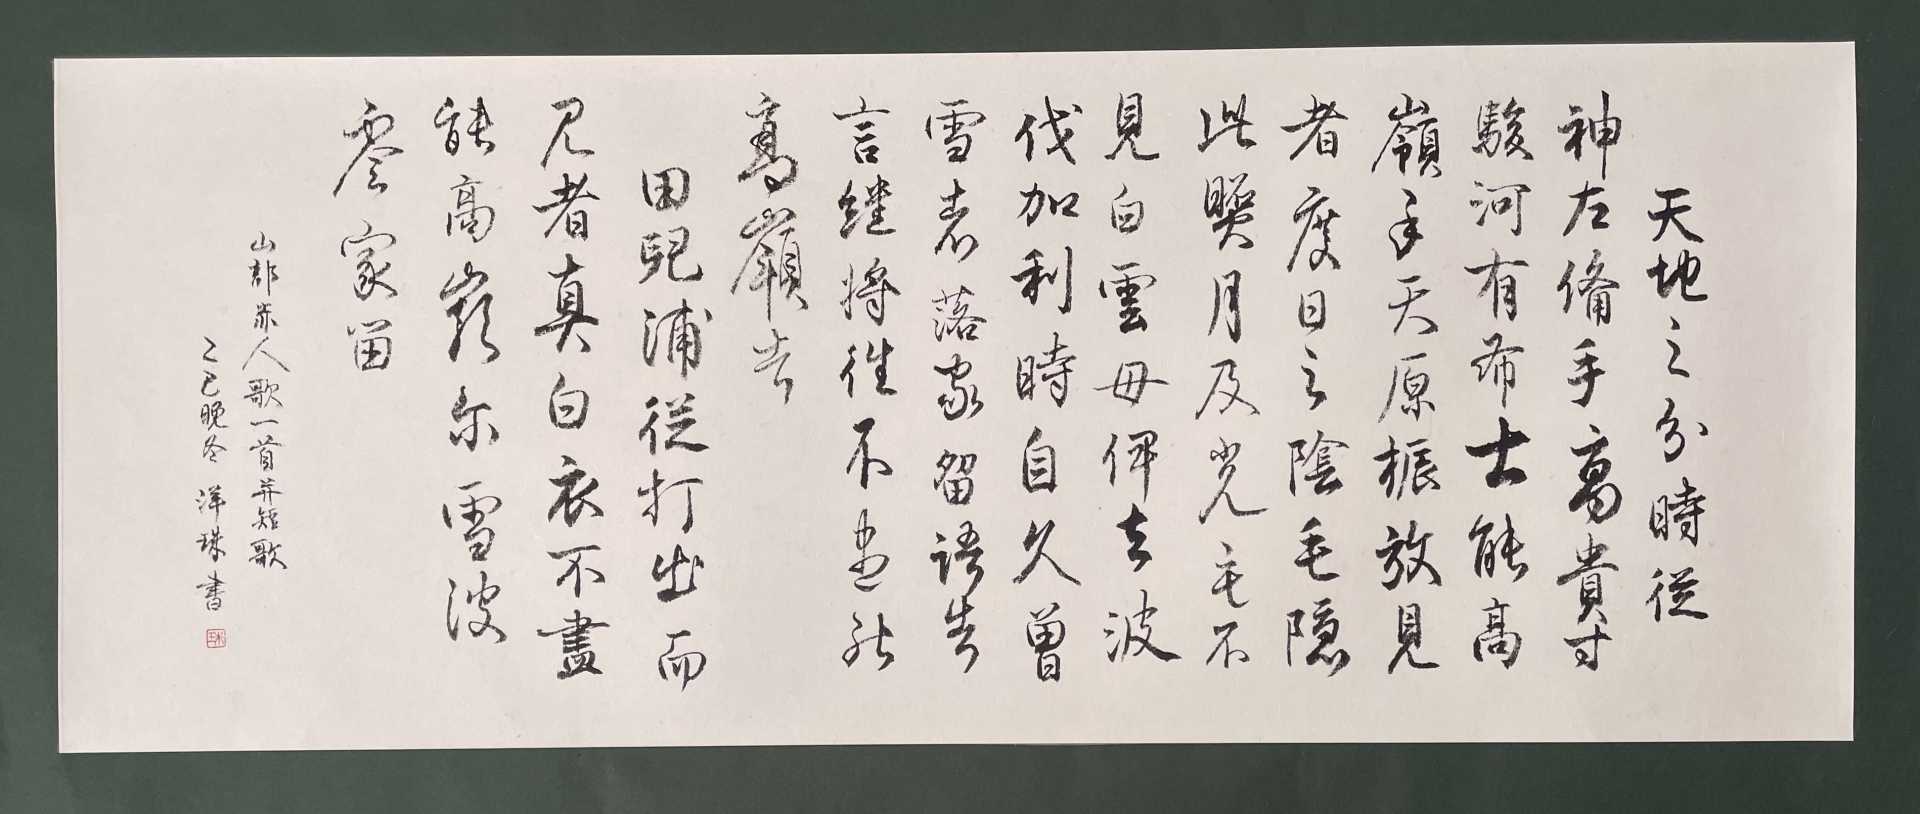 天地之分時從
神左備手髙貴寸
駿河有布士能高
嶺乎天原振放見
者度日之陰毛隠
比照月乃光毛不
見白雲毋伊去波
伐加利時自久曽
雪者落家留語告
言継将徃不尽能
髙嶺者
田兒浦從打出而
見者真白衣不盡
能高嶺尓雪波
零家留
山部赤人歌一首并短歌
乙巳晚冬 洋珠書